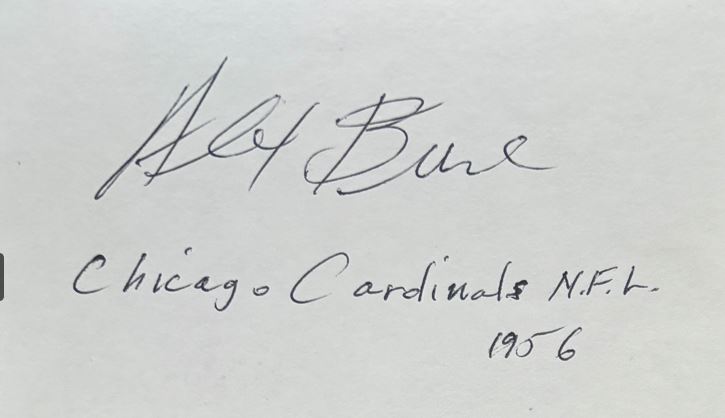 Alex Burl
Chicago Cardinals N.F.L.
1956